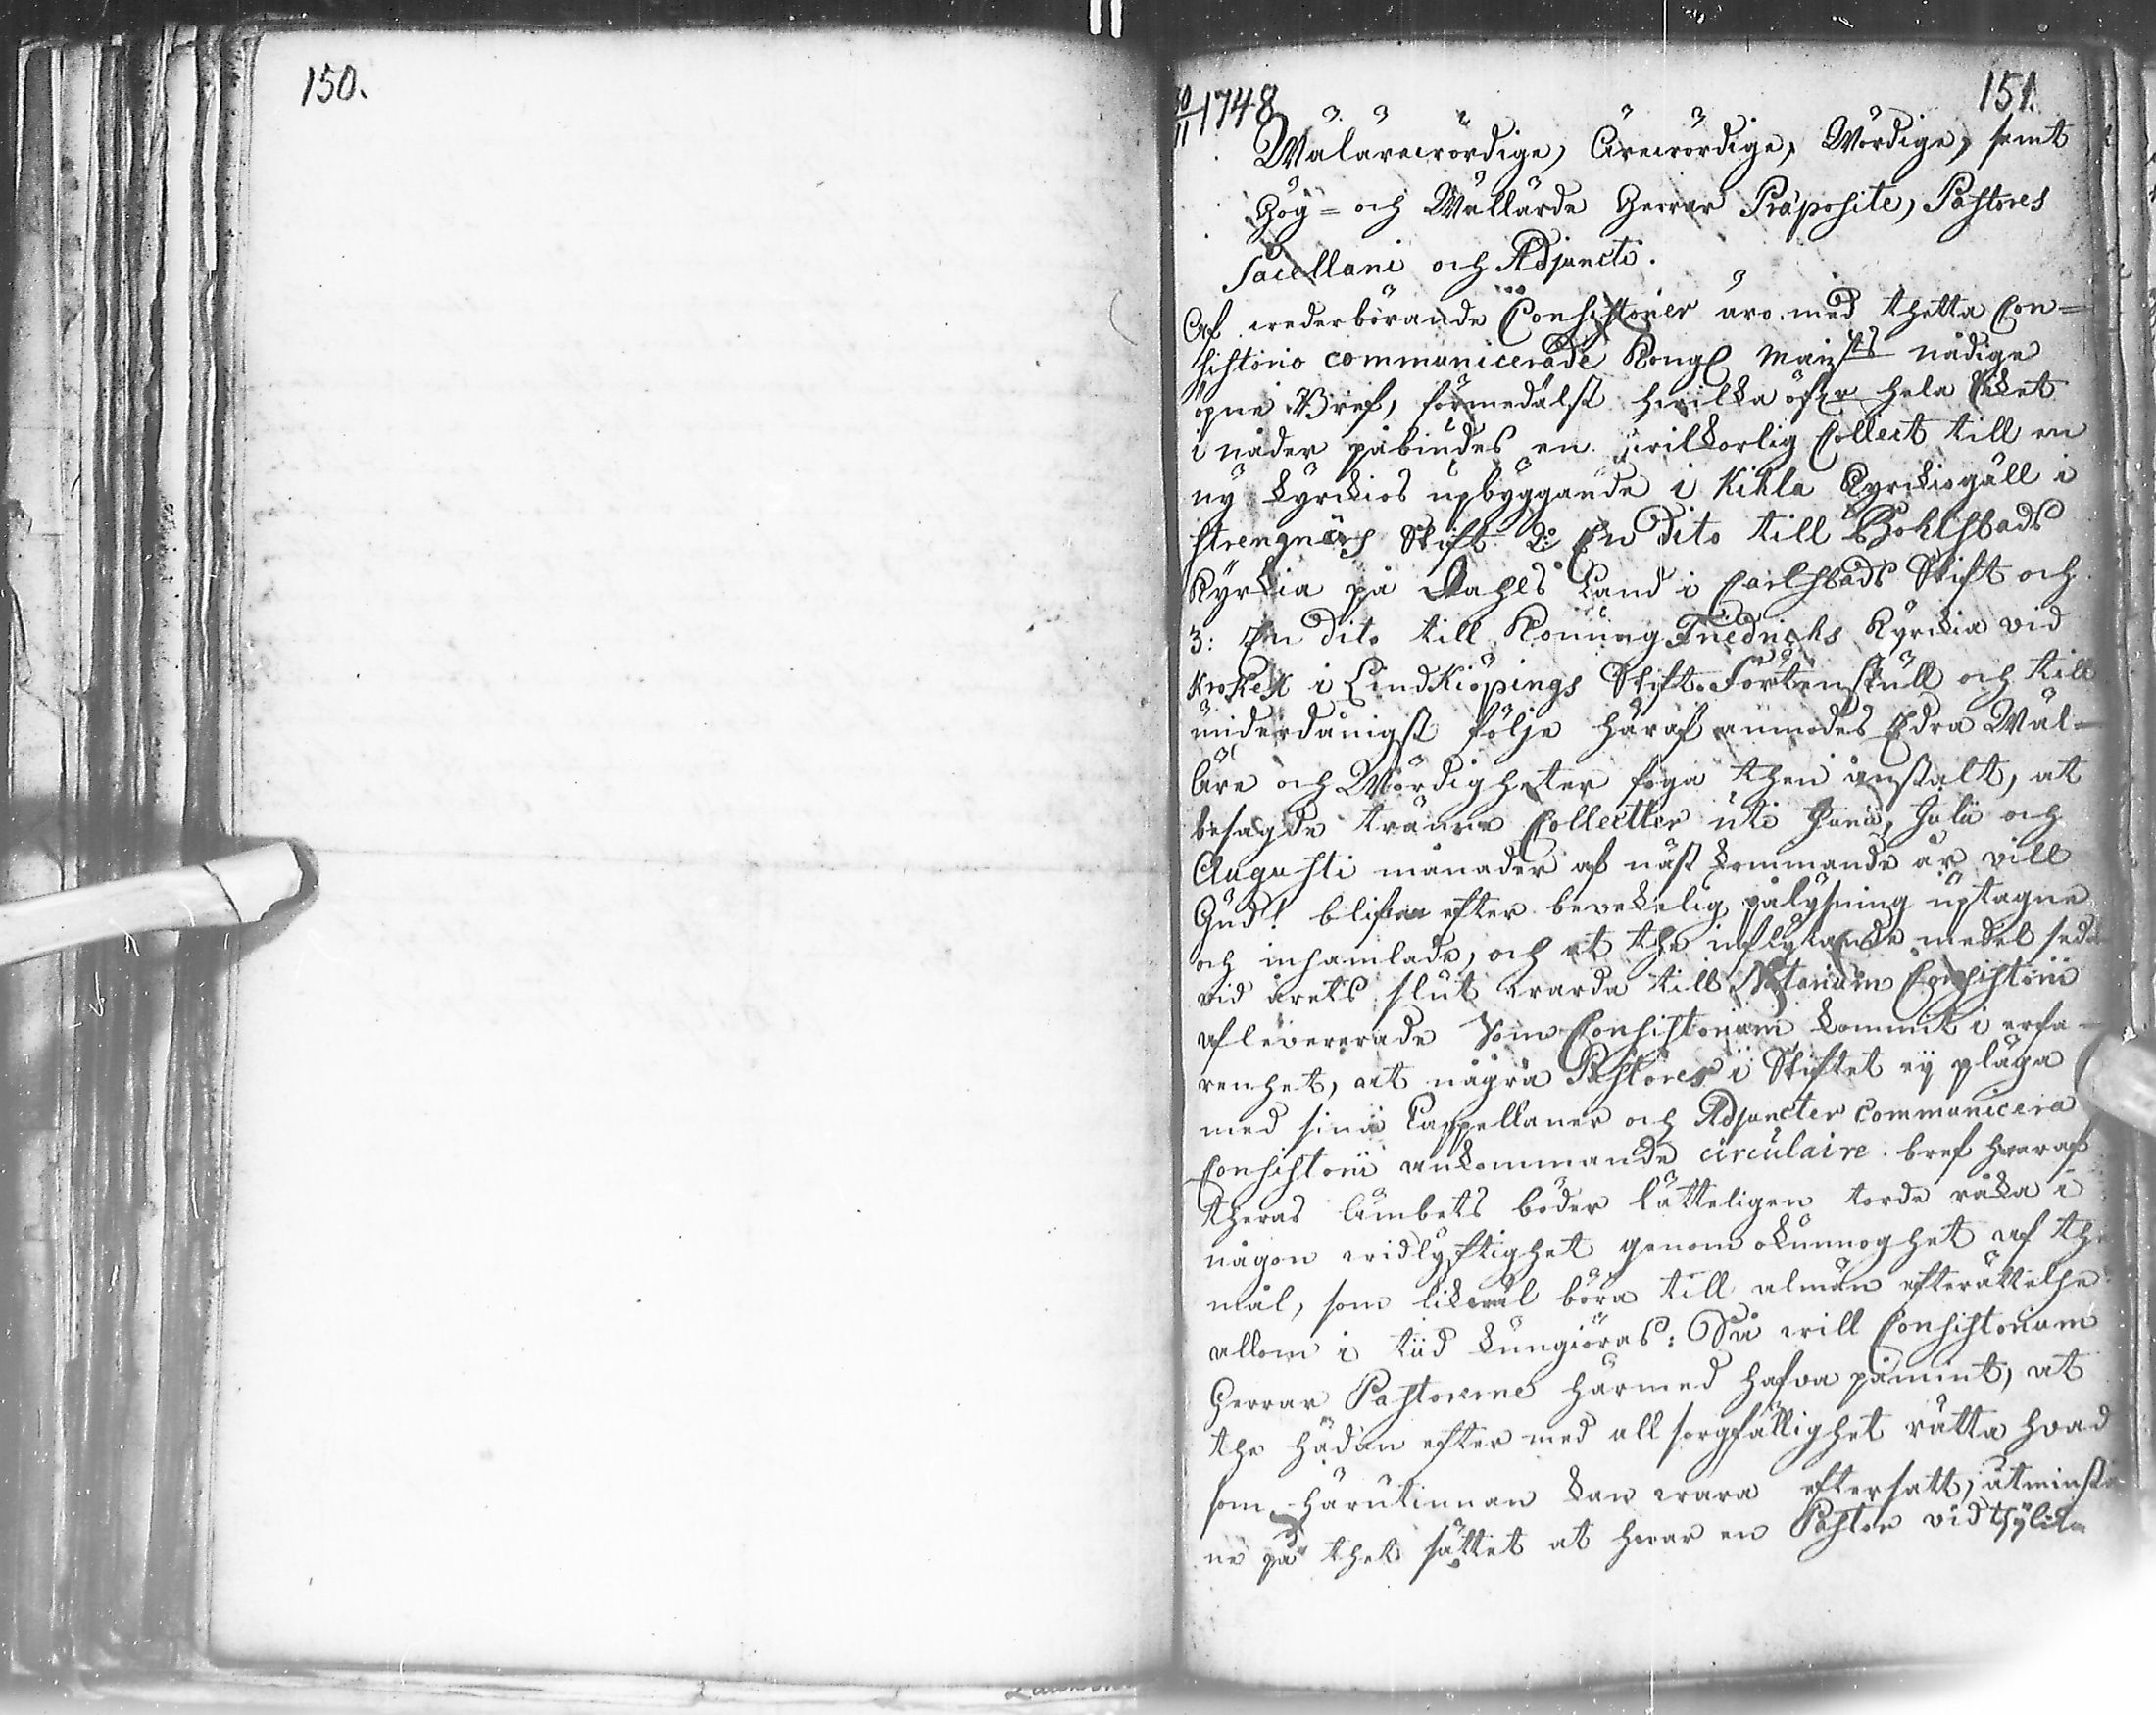 150.
30/11 1748
151.
Wälärewördige, Ärewördige, Wördige, samt
Hög- och Wällärde Herrar Præposite, Pastores
Sacellani och Adjuncti.
Af wederbörande Consistorier äro med thetta Con=
sistorio communicerade Kongl Maij:ts nådige
öpne Bref, förmedälst hwilka öfwer hela Riket
i nåder påbiudes en wilkorlig Collect till en
ny kyrckios upbyggande i Kihla kyrckiogäll i
Strengnäs Stift 2: En Dito till Bohlstads
Kyrkia på Dahls Land i Carlstads Stift och
3: En Dito till Konung Friedrichs Kyrckia vid
Krokek i Lindkiöpings Stift. Förtenskull och till
underdånigst följe häraf anmodes Edra Wäl=
Äre och Wördigheter foga then anstalt, at
besagde tränne Collecter uti Junii, Julii och
Augusti månader af näst kommande år will
Gud! blifwa efter bevekelig pålysning uptagne
och insamlade, och at the inflytande medel seda
vid årets slut warda till Notarium Consistorii
aflevererade Som Consistorium kommit i erfa-
renhet, at några Pastores i Stiftet ey pläga
med sina Cappellaner och Adjuncter communicera
Consistorii ankommande circulaire bref hwaraf
theras Ämbets böder lätteligen torde råka i
någon widlyftighet genom okunnoghet af the
mål, som likwäl böra till almän efterättelse
allom i tiid kungiöras: Så will Consistorium
Herrar Pastorerne härmed hafva påmint, at
the hädan efter med all sorgfällighet rätta hvad
som härutinnan kan wara eftersatt, åtminstå
ne på thet sättet at hwar en Pastor vid